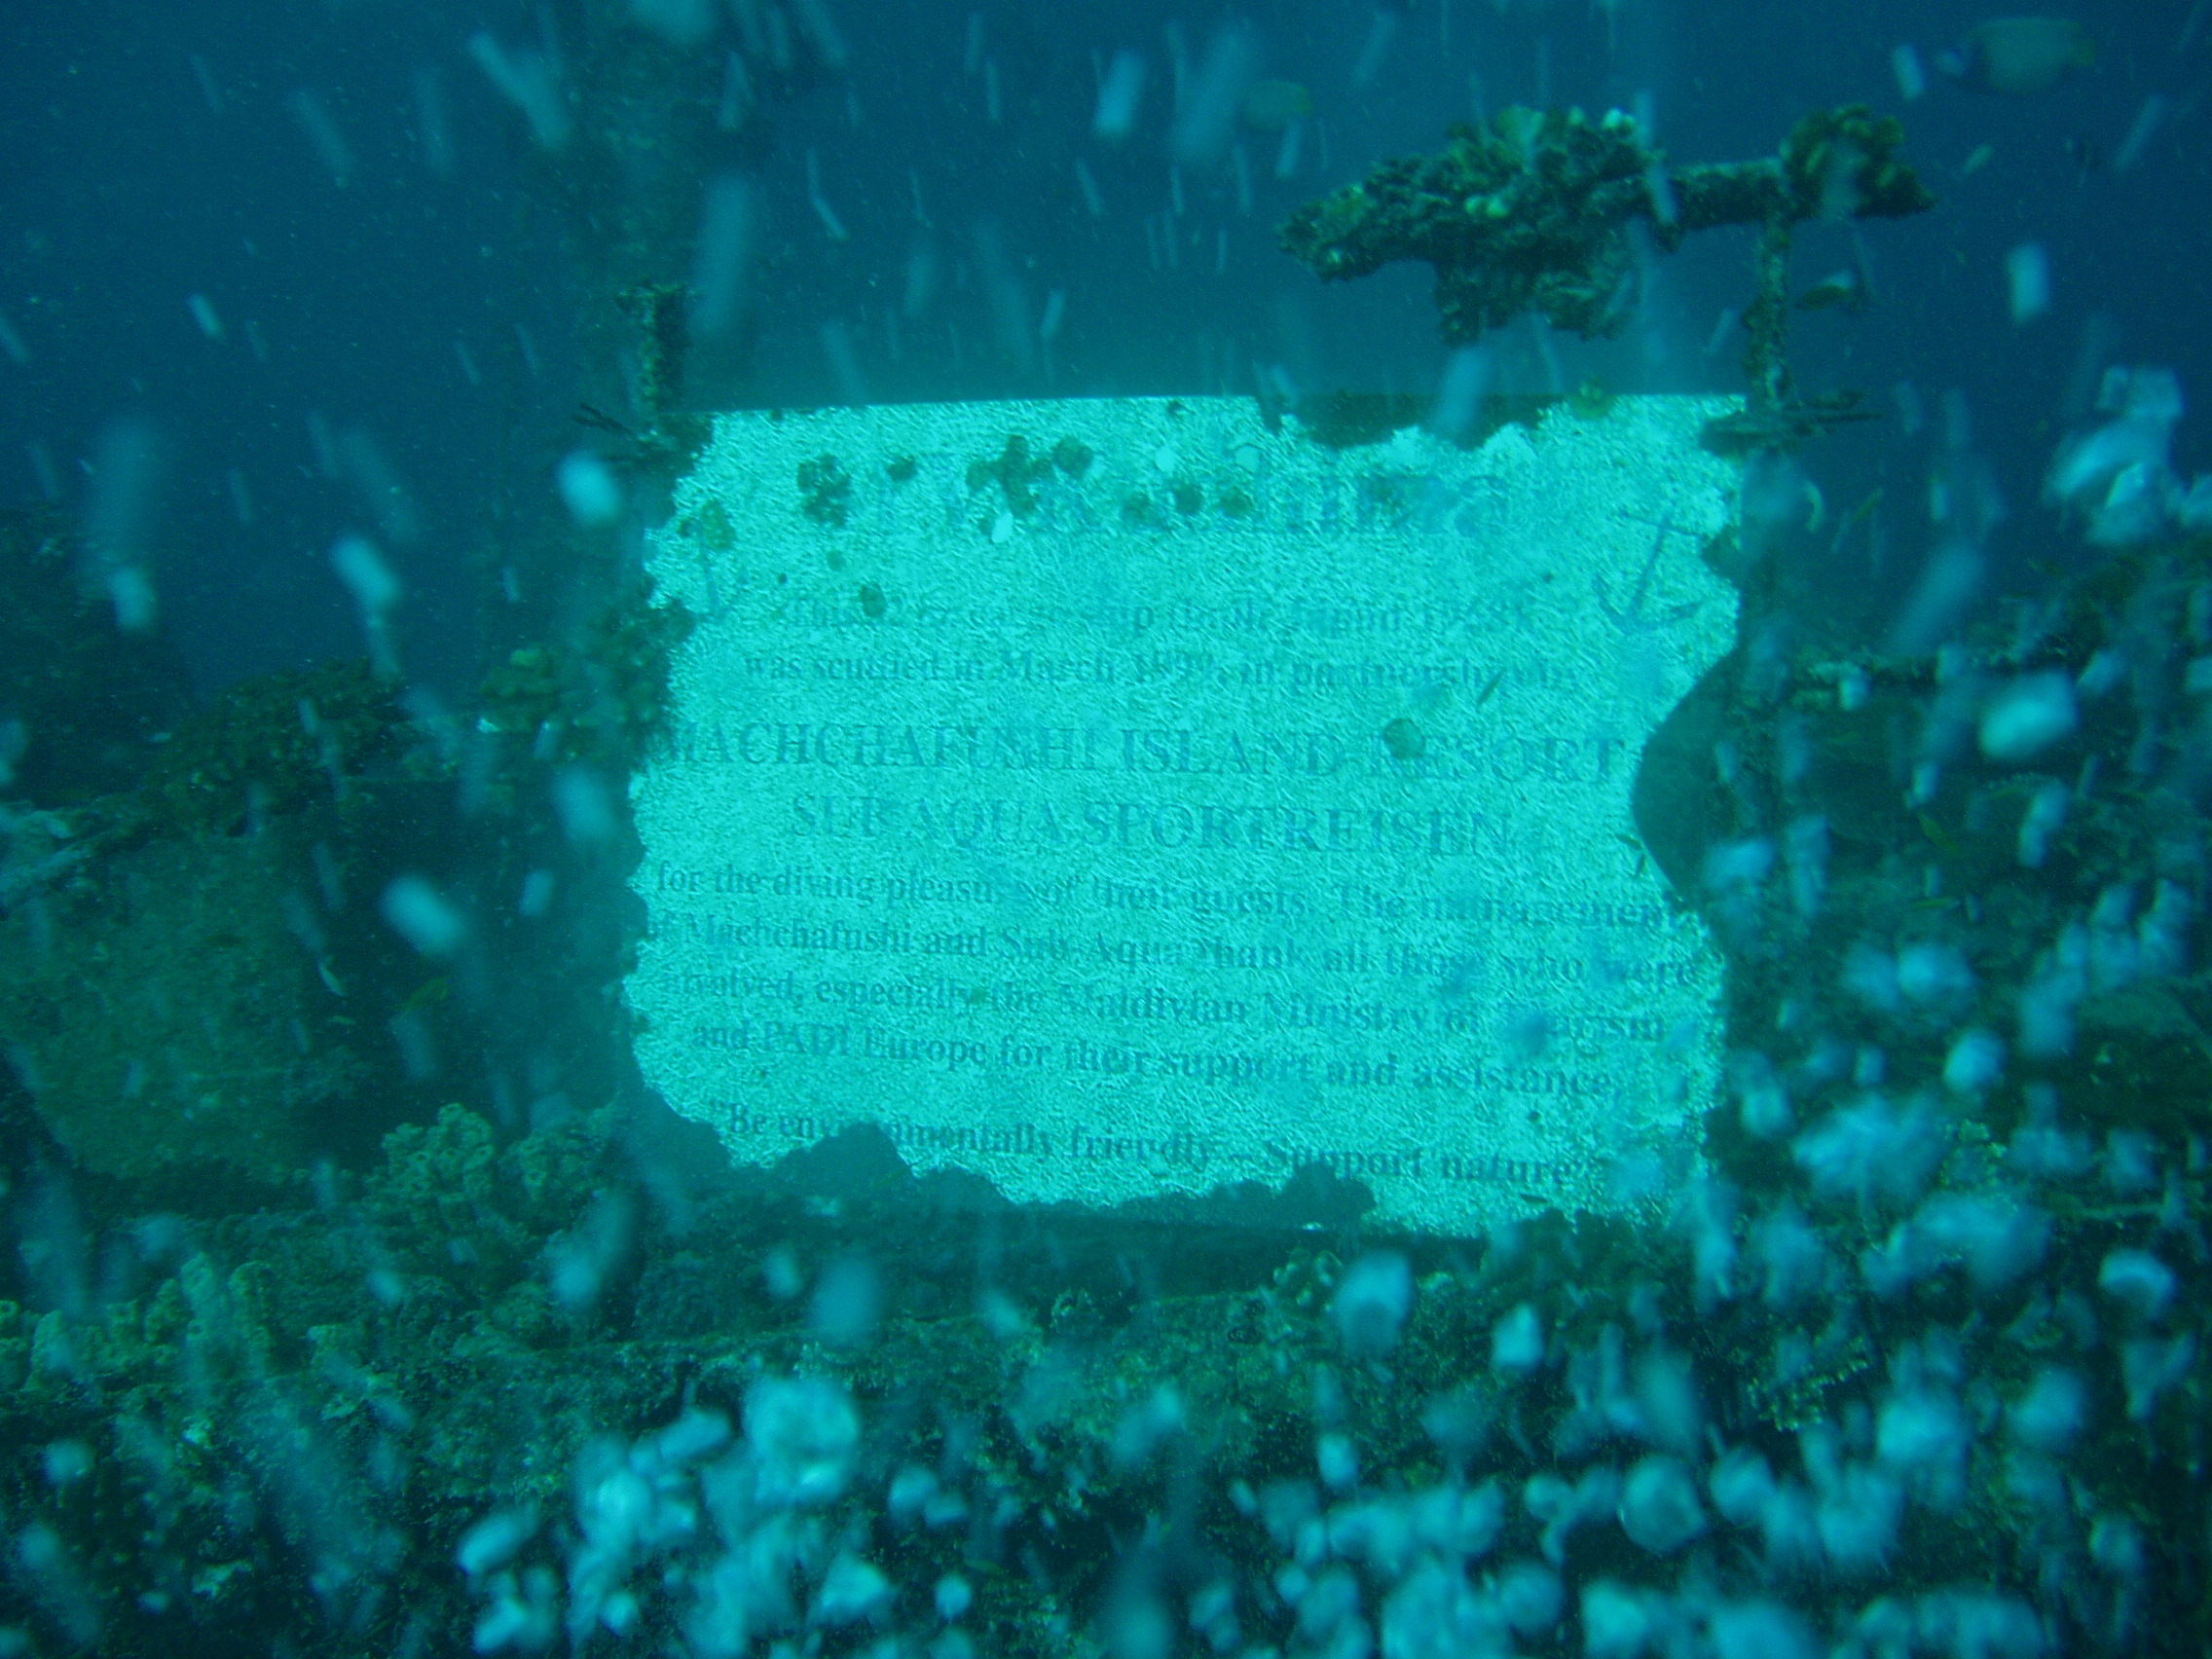 was scuttled in March in partnership by
MACHCHAFUSHI ISLAND RESORT
SUB AQUA SPORTREISEN
for the diving pleasure of their guests. The management
of Machchafushi and Sub Aqua thank all those who were
involved, especially the Maldivian Ministry of Tourism
and PADI Europe for their support and assistance.
"Be environmentally friendly - Support nature"